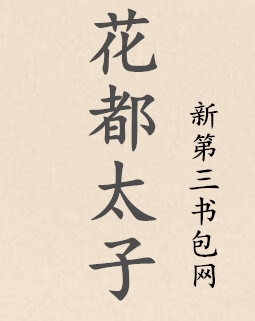 花都太子
新第三书包网